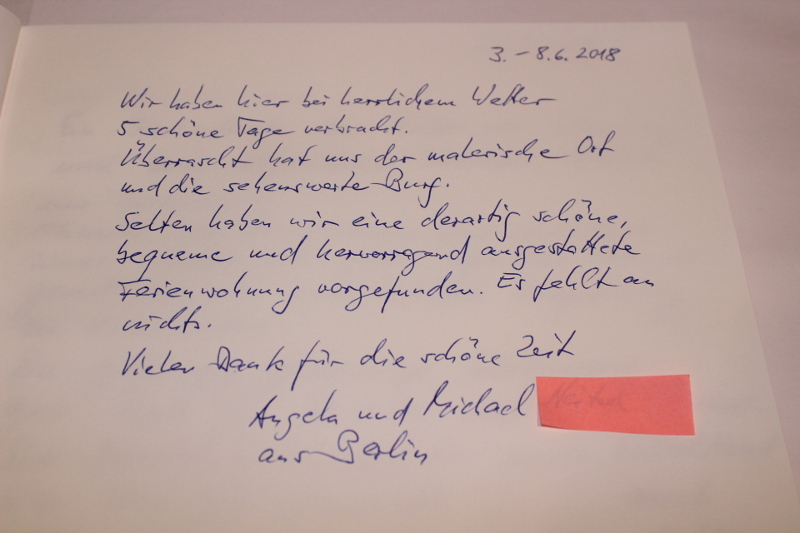 3. – 8.6.2018
Wir haben hier bei herrlichem Wetter
5 schöne Tage verbracht.
Überrascht hat uns der malerische Ort
und die sehenswerte Burg.
Selten haben wir eine derartig schöne,
bequeme und hervorragend ausgestattete
Ferienwohnung vorgefunden. Es fehlt an
nichts.
Vielen Dank für die schöne Zeit
Angela und Michael
aus Berlin